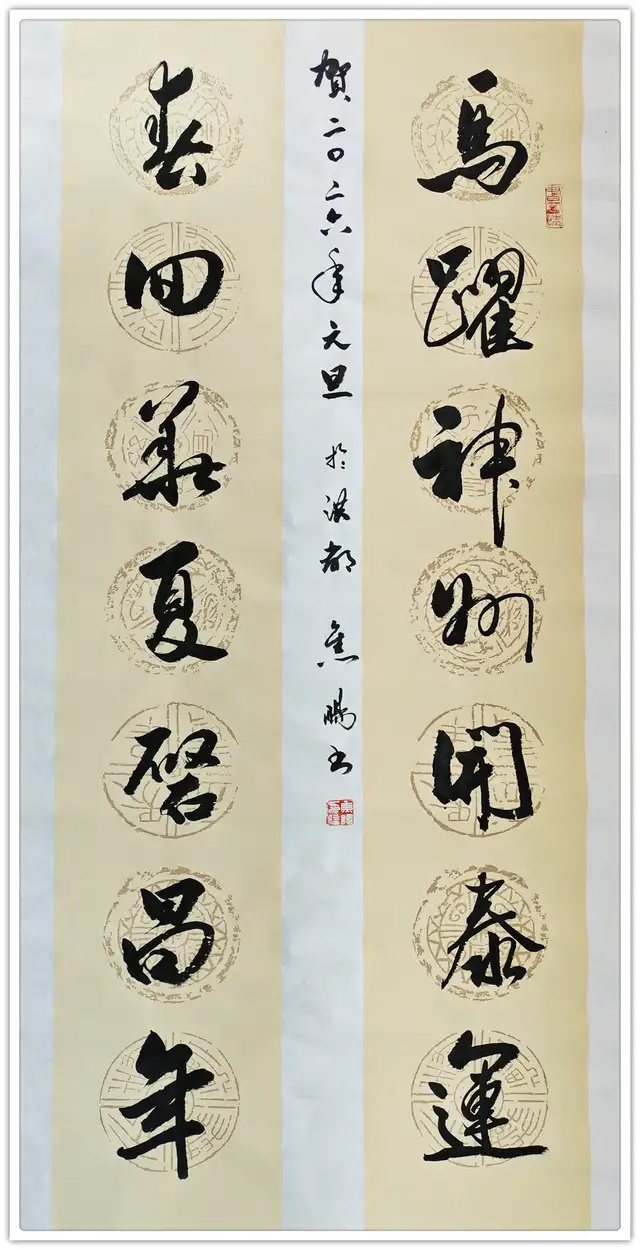 馬躍神州開泰運
春回華夏啓昌年
賀二〇二六年元旦 於洪都 焦鵬書